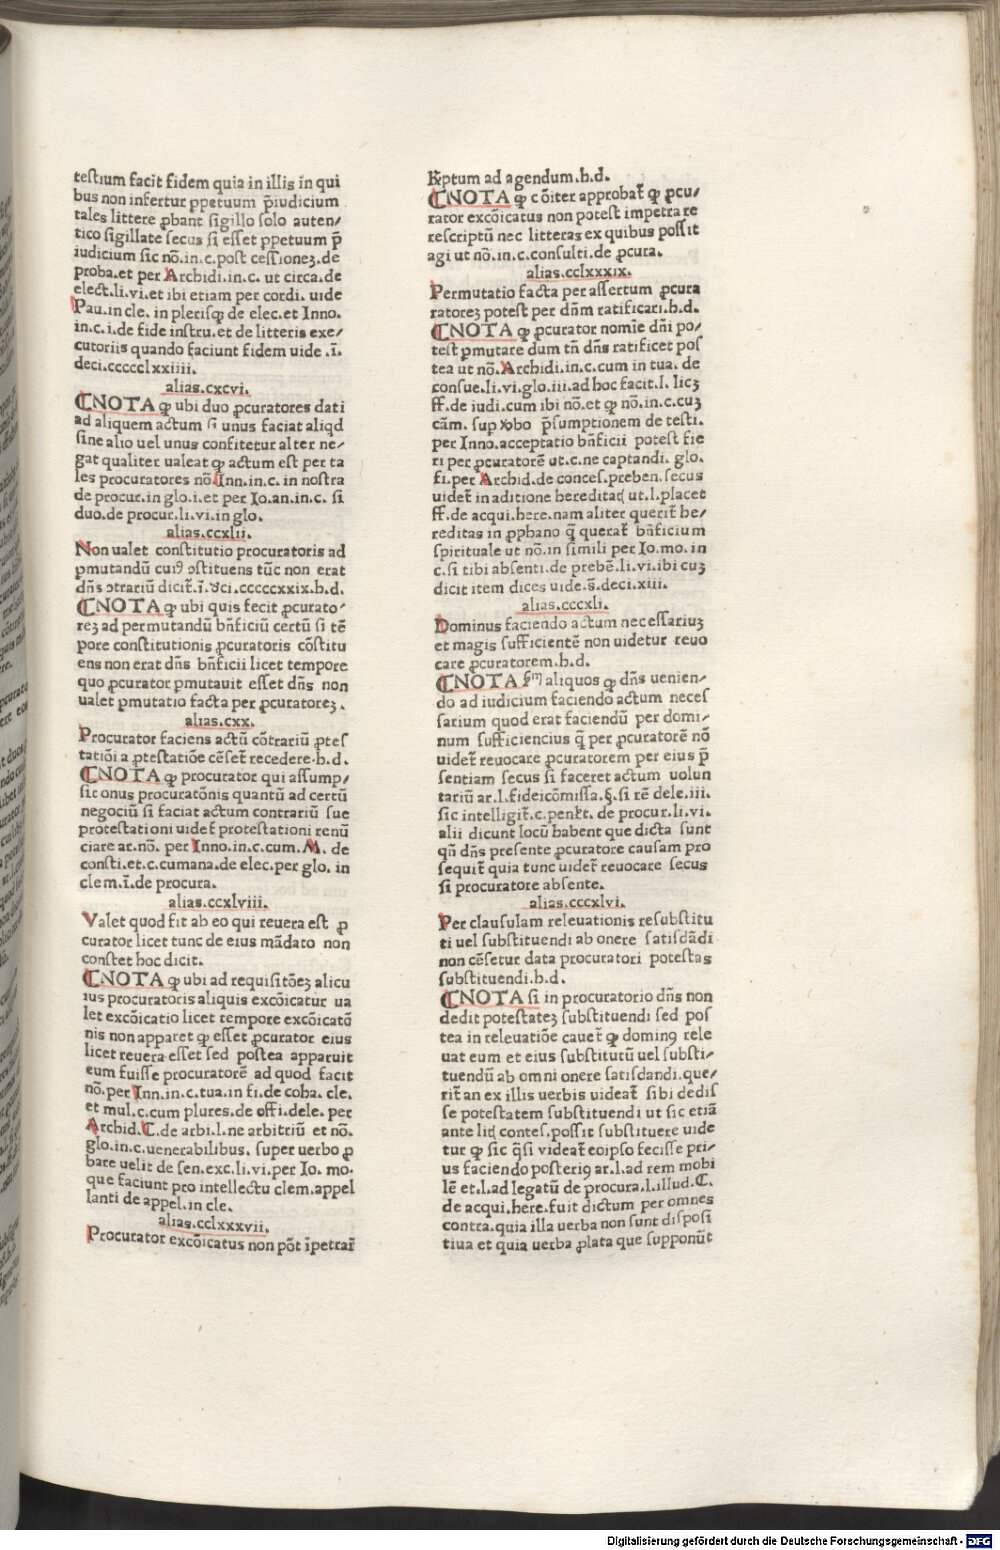 testium facit fidem quia in illis in qui
bus non infertur ꝑpetuum p̃iudicium
tales littere ꝓbant sigillo solo auten/
tico sigillate secus si esset ꝑpetuum p̃
iudicium sic nō.in.c.post cessionez.de
proba.et per Archidi.in.c. ut circa.de
elect.li.vi.et ibi etiam per cordi. uide
Pau.in cle. in plerisqꝫ de elec.et Inno.
in.c.i.de fide instru.et de litteris exe/
cutoriis quando faciunt fidem uide .ī.
deci.cccccclxxiiii.
alias.cxcvi.
⁋NOTA ꝙ ubi duo ꝓcuratores dati
ad aliquem actum si unus faciat aliqd
sine alio uel unus confitetur alter ne/
gat qualiter ualeat ꝙ actum est per ta
les procuratores nō.Inn.in.c. in nostra
de procur.in glo.i.et per Io.an.in.c. si
duo.de procur.li.vi.in glo.
alias.ccxlii.
Non ualet constitutio procuratoris ad
ꝑmutandū cuiꝰ ꝯstituens tūc non erat
dn̄s ꝯtrariū dicit̄.ī.deci.cccccxxix.h.d.
⁋NOTA ꝙ ubi quis fecit ꝓcurato/
reꝫ ad permutandū bn̄ficiū certū si tē
pore constitutionis ꝓcuratoris cōstitu
ens non erat dn̄s bn̄ficii licet tempore
quo ꝓcurator ꝑmutauit esset dn̄s non
ualet ꝑmutatio facta per ꝓcuratoreꝫ.
alias.cxx.
Procurator faciens actū cōtrariū ꝓtes
tatiōi a ꝓtestatiōe cēset̄ recedere.h.d.
⁋NOTA ꝙ procurator qui assump/
sit onus procuratōnis quantū ad certū
negociū si faciat actum contrariū sue
protestationi uidet̄ protestationi renū
ciare ar.nō. per Inno.in.c.cum.M. de
consti.et.c.cumana.de elec.per glo. in
clem.ī.de procura.
alias.ccxlviii.
Valet quod fit ab eo qui reuera est ꝓ
curator licet tunc de eius mādato non
constet hoc dicit.
⁋NOTA ꝙ ubi ad requisitōeꝫ alicu
ius procuratoris aliquis excōicatur ua
let excōicatio licet tempore excōicatō
nis non apparet ꝙ esset ꝓcurator eius
licet reuera esset sed postea apparuit
eum fuisse procuratorē ad quod facit
nō.per Inn.in.c.tua.in fi.de coha. cle.
et mul.c.cum plures.de offi.dele. per
Archid.C.de arbi.l.ne arbitriū et nō.
glo.in.c.uenerabilibus. super uerbo ꝓ
bare uelit de sen.exc.li.vi.per Io. mo.
que faciunt pro intellectu clem.appel
lanti de appel.in cle.
alias.cclxxxvii.
Procurator excōicatus non pōt īpetrar̄
ad agendum.h.d.
⁋NOTA ꝙ cōiter approbat̄ ꝙ ꝓcu/
rator excōicatus non potest impetrare
rescriptū nec litteras ex quibus possit
agi ut nō.in.c.consulti.de ꝓcura.
alias.cclxxxix.
Permutatio facta per assertum ꝓcura
ratoreꝫ potest per dn̄m ratificari.h.d.
⁋NOTA ꝙ ꝓcurator nomīe dn̄i po/
test ꝑmutare dum tn̄ dn̄s ratificet pos
tea ut nō.Archidi.in.c.cum in tua. de
consue.li.vi.glo.iii.ad hoc facit.l. licꝫ
ff.de iudi.cum ibi nō.et ꝙ nō.in.c.cuꝫ
cām. sup p̃sumptionem de testi.
per Inno.acceptatio bn̄ficii potest fie
ri per ꝓcuratorē ut.c.ne captandi. glo.
fi.per Archid.de conces.preben.secus
uidet̄ in aditione hereditat̄ ut.l.placet
ff.de acqui.here.nam aliter querit̄ he/
reditas in ꝓphano q̄ querat̄ bn̄ficium
spirituale ut nō.in simili per Io.mo. in
c.si tibi absenti.de prebē.li.vi.ibi cuꝫ
dicit item dices uide.s̄.deci.xiii.
alias.cccxli.
Dominus faciendo actum necessariuꝫ
et magis sufficientē non uidetur reuo
care ꝓcuratorem.h.d.
⁋NOTA aliquos ꝙ dn̄s uenien/
do ad iudicium faciendo actum neces
sarium quod erat faciendū per domi/
num sufficiencius q̄ per ꝓcuratorē nō
uidet̄ reuocare ꝓcuratorem per eius p̃
sentiam secus si faceret actum uolun
tariū ar.l.fideicōmissa.§.si rē dele.iii.
sic intelligit̄.c.penlt̄. de procur.li.vi.
alii dicunt locū habent que dicta sunt
qn̄ dn̄s presente ꝓcuratore causam pro
sequit̄ quia tunc uidet̄ reuocare secus
si procuratore absente.
alias.cccxlvi.
Per clausulam releuationis resubstitu
ti uel substituendi ab onere satisdādi
non cēsetur data procuratori potestas
substituendi.h.d.
⁋NOTA si in procuratorio dn̄s non
dedit potestateꝫ substituendi sed pos
tea in releuatiōe cauet̄ ꝙ dominꝰ rele
uat eum et eius substitutū uel substi/
tuendū ab omni onere satisdandi.que/
rit̄ an ex illis uerbis uideat̄ sibi dedis
se potestatem substituendi ut sic etiā
ante lit̄ contes.possit substituere uide
tur ꝙ sic q̄si videat̄ eoipso fecisse pri/
us faciendo posteriꝰ ar.l.ad rem mobi
lē et.l.ad legatū de procura.l.illud.C.
de acqui.here.fuit dictum per omnes
contra.quia illa uerba non sunt disposi
tiua et quia uerba ꝓlata que supponūt
Digitalisierung gefördert durch die Deutsche Forschungsgemeinschaft - DFG